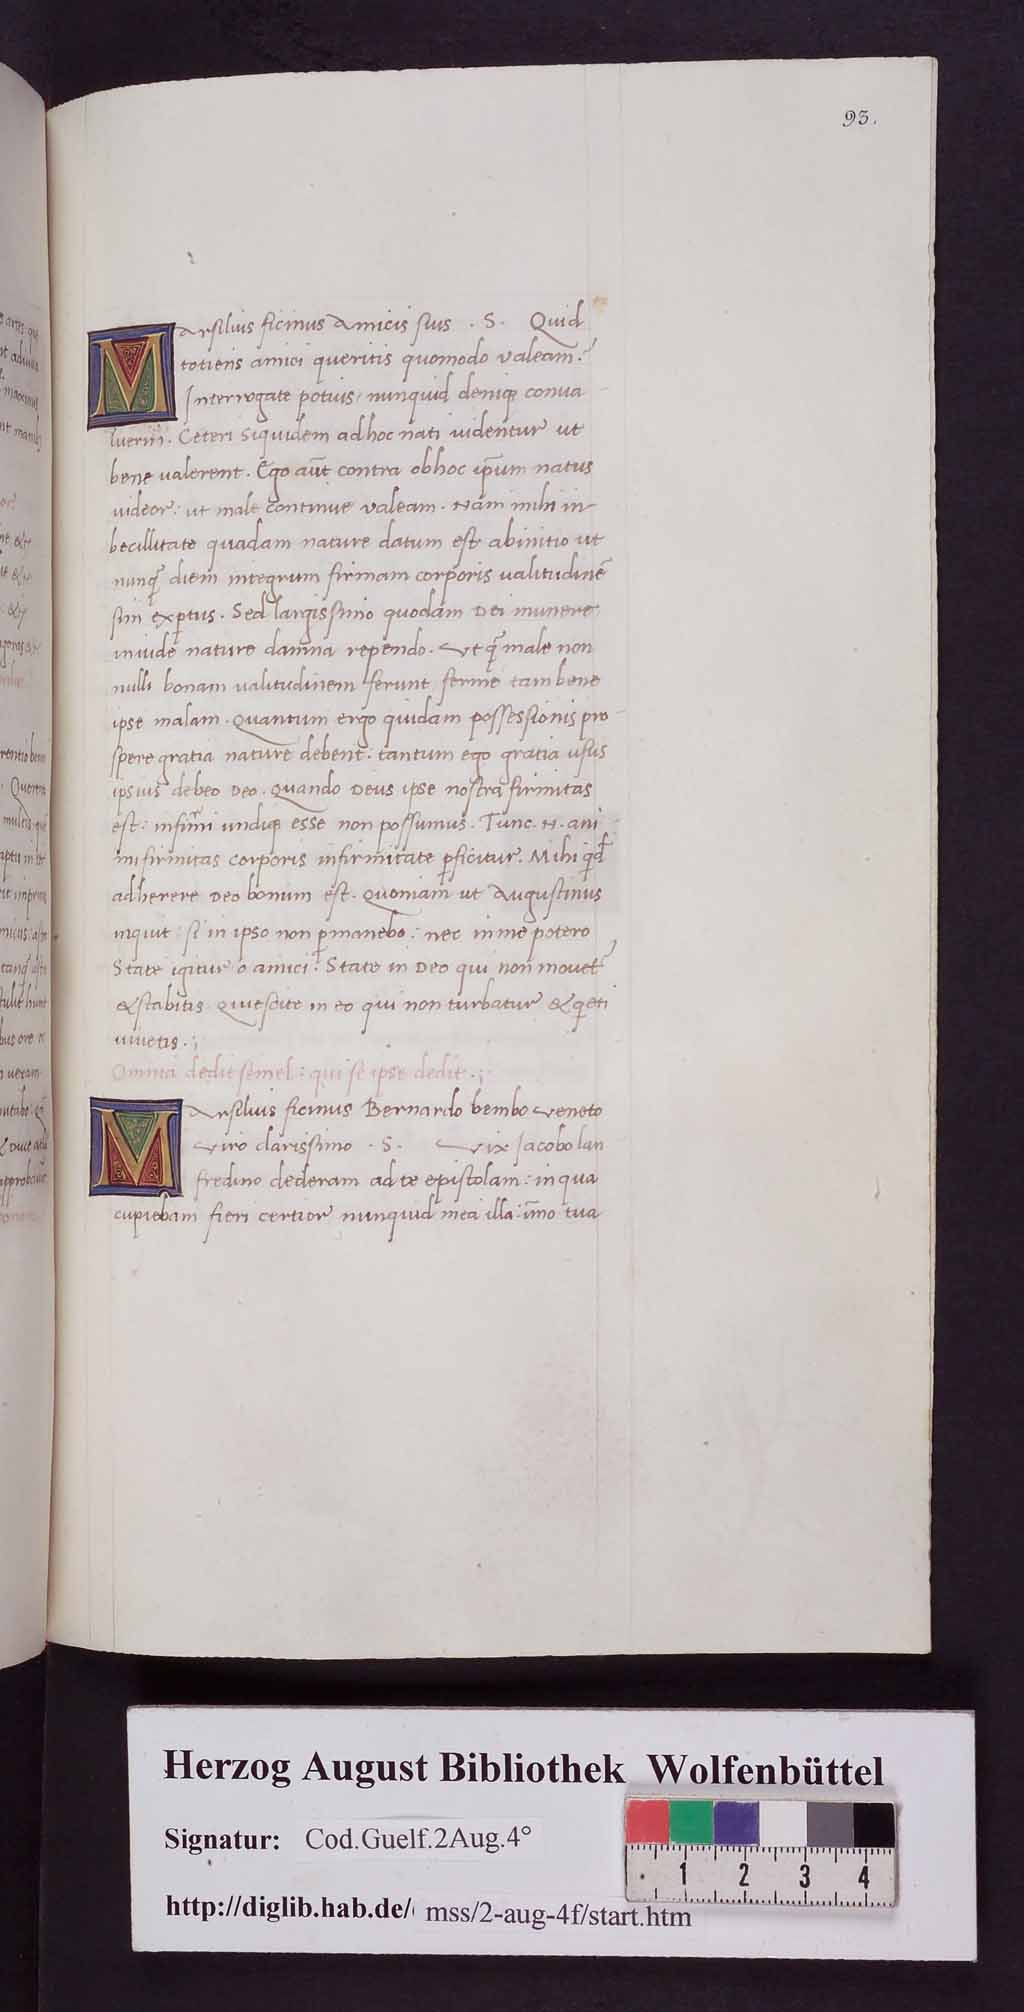 93.
Marsilius ficinus Amicis suis . S. Quid
totiens amici queritis quomodo valeam?
Interrogate potius, nunquid deniqꝫ conua
luerim. Ceteri siquidem adhoc nati uidentur ut
bene valerent. Ego aūt contra obhoc ip̄um natus
uideor: ut male continue valeam. Nam mihi in
becillitate quadam nature datum est abinitio ut
nunq̄ diem integrum firmam corporis ualitudinē
sim exp̱tus. Sed largissimo quodam Dei munere
inuide nature damna rependo. Ut q̄ male non
nulli bonam ualitudinem ferunt ferme tam bene
ipse malam. Quantum ergo quidam possessionis pro
spere gratia nature debent. tantum ego gratia usus
ipsius debeo Deo. Quando Deus ipse nostra firmitas
est: infirmi undiqꝫ esse non possumus. Tunc .N. ani
mi firmitas corporis infirmitate p̱ficitur. Mihi q̇d
adherere Deo bonum est. Quoniam ut Augustinus
inquit: si in ipso non p̱manebo: nec in me potero
State igitur o amici: State in Deo qui non mouet᷑
& stabitis Quiescite in eo qui non turbatur & q̇eti
uiuetis.;
Omnia dedit semel: qui se ipse dedit.;
Marsilius ficinus Bernardo bembo veneto
viro clarissimo . S. Vix Jacobo lan
fredino dederam ad te epistolam: in qua
cupiebam fieri certior nunquid mea illa: īmo tua
Herzog August Bibliothek Wolfenbüttel
Signatur: Cod.Guelf.2Aug.4°
http://diglib.hab.de/ mss/2-aug-4f/start.htm
1 2 3 4